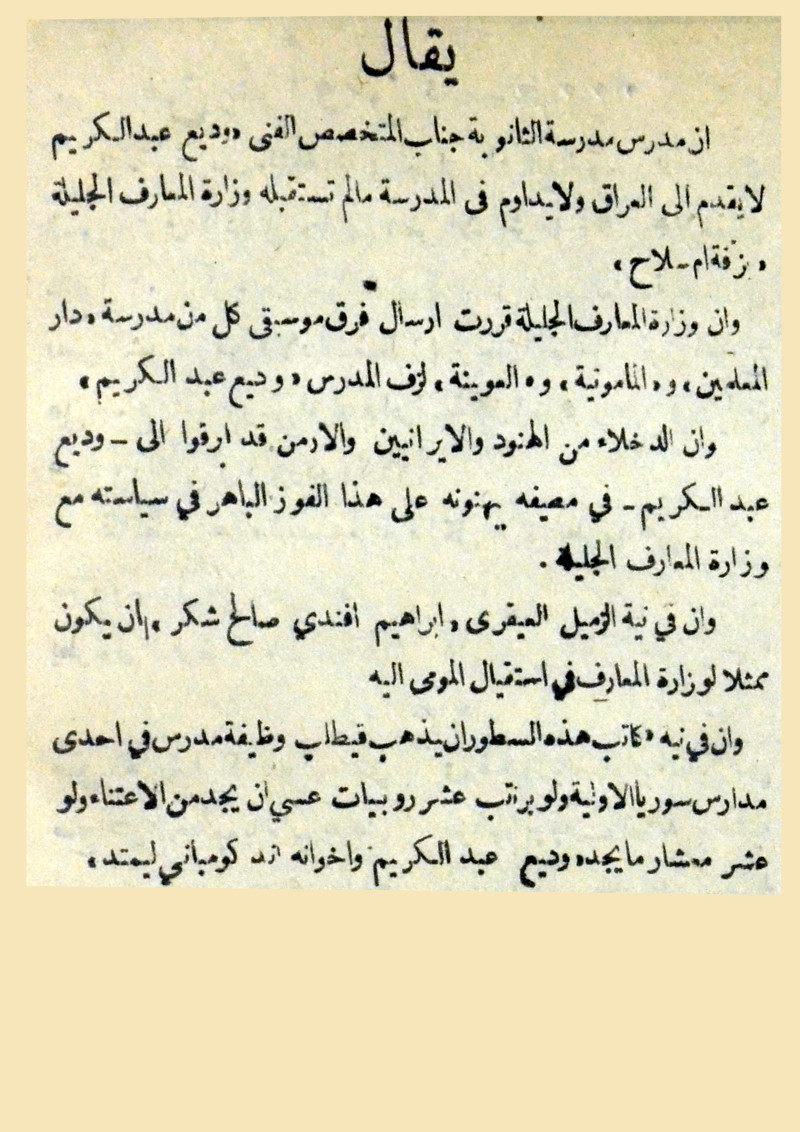 يقال
ان مدرس مدرسة الثانوية جناب المتخصص الفنى «وديع عبد الكريم
لا يقدم الى العراق ولا يداوم فى المدرسة مالم تستقبله وزارة المعارف الجليلة
« بزفة ام ـ لاح »
وان وزارة المعارف الجليلة قررت ارسال فرق موسيقى كل من مدرسة «دار
المعلمين » و « المامونية » و « العوينة » لزف المدرس « وديع عبد الكريم »
وان الدخلاء من الهنود والايرانيين والارمن قد ابرقوا الى ـ وديع
عبد الكريم ـ في مصيفه يهنونه على هذا الفوز الباهر في سياسته مع
وزارة المعارف الجليلة .
وان في نية الزميل العبقرى « ابراهيم افندي صالح شكر » ان يكون
ممثلا لوزارة المعارف في استقبال المومى اليه
وان في نيه « كاتب هذه السطور ان يذهب فيطلب وظيفة مدرس في احدى
مدارس سوريا الاولية ولو براتب عشر روبيات عسي ان يجد من الاعتناء ولو
عشر معشار ما يجده وديع عبد الكريم واخوانه اند كومباني ليمتد »